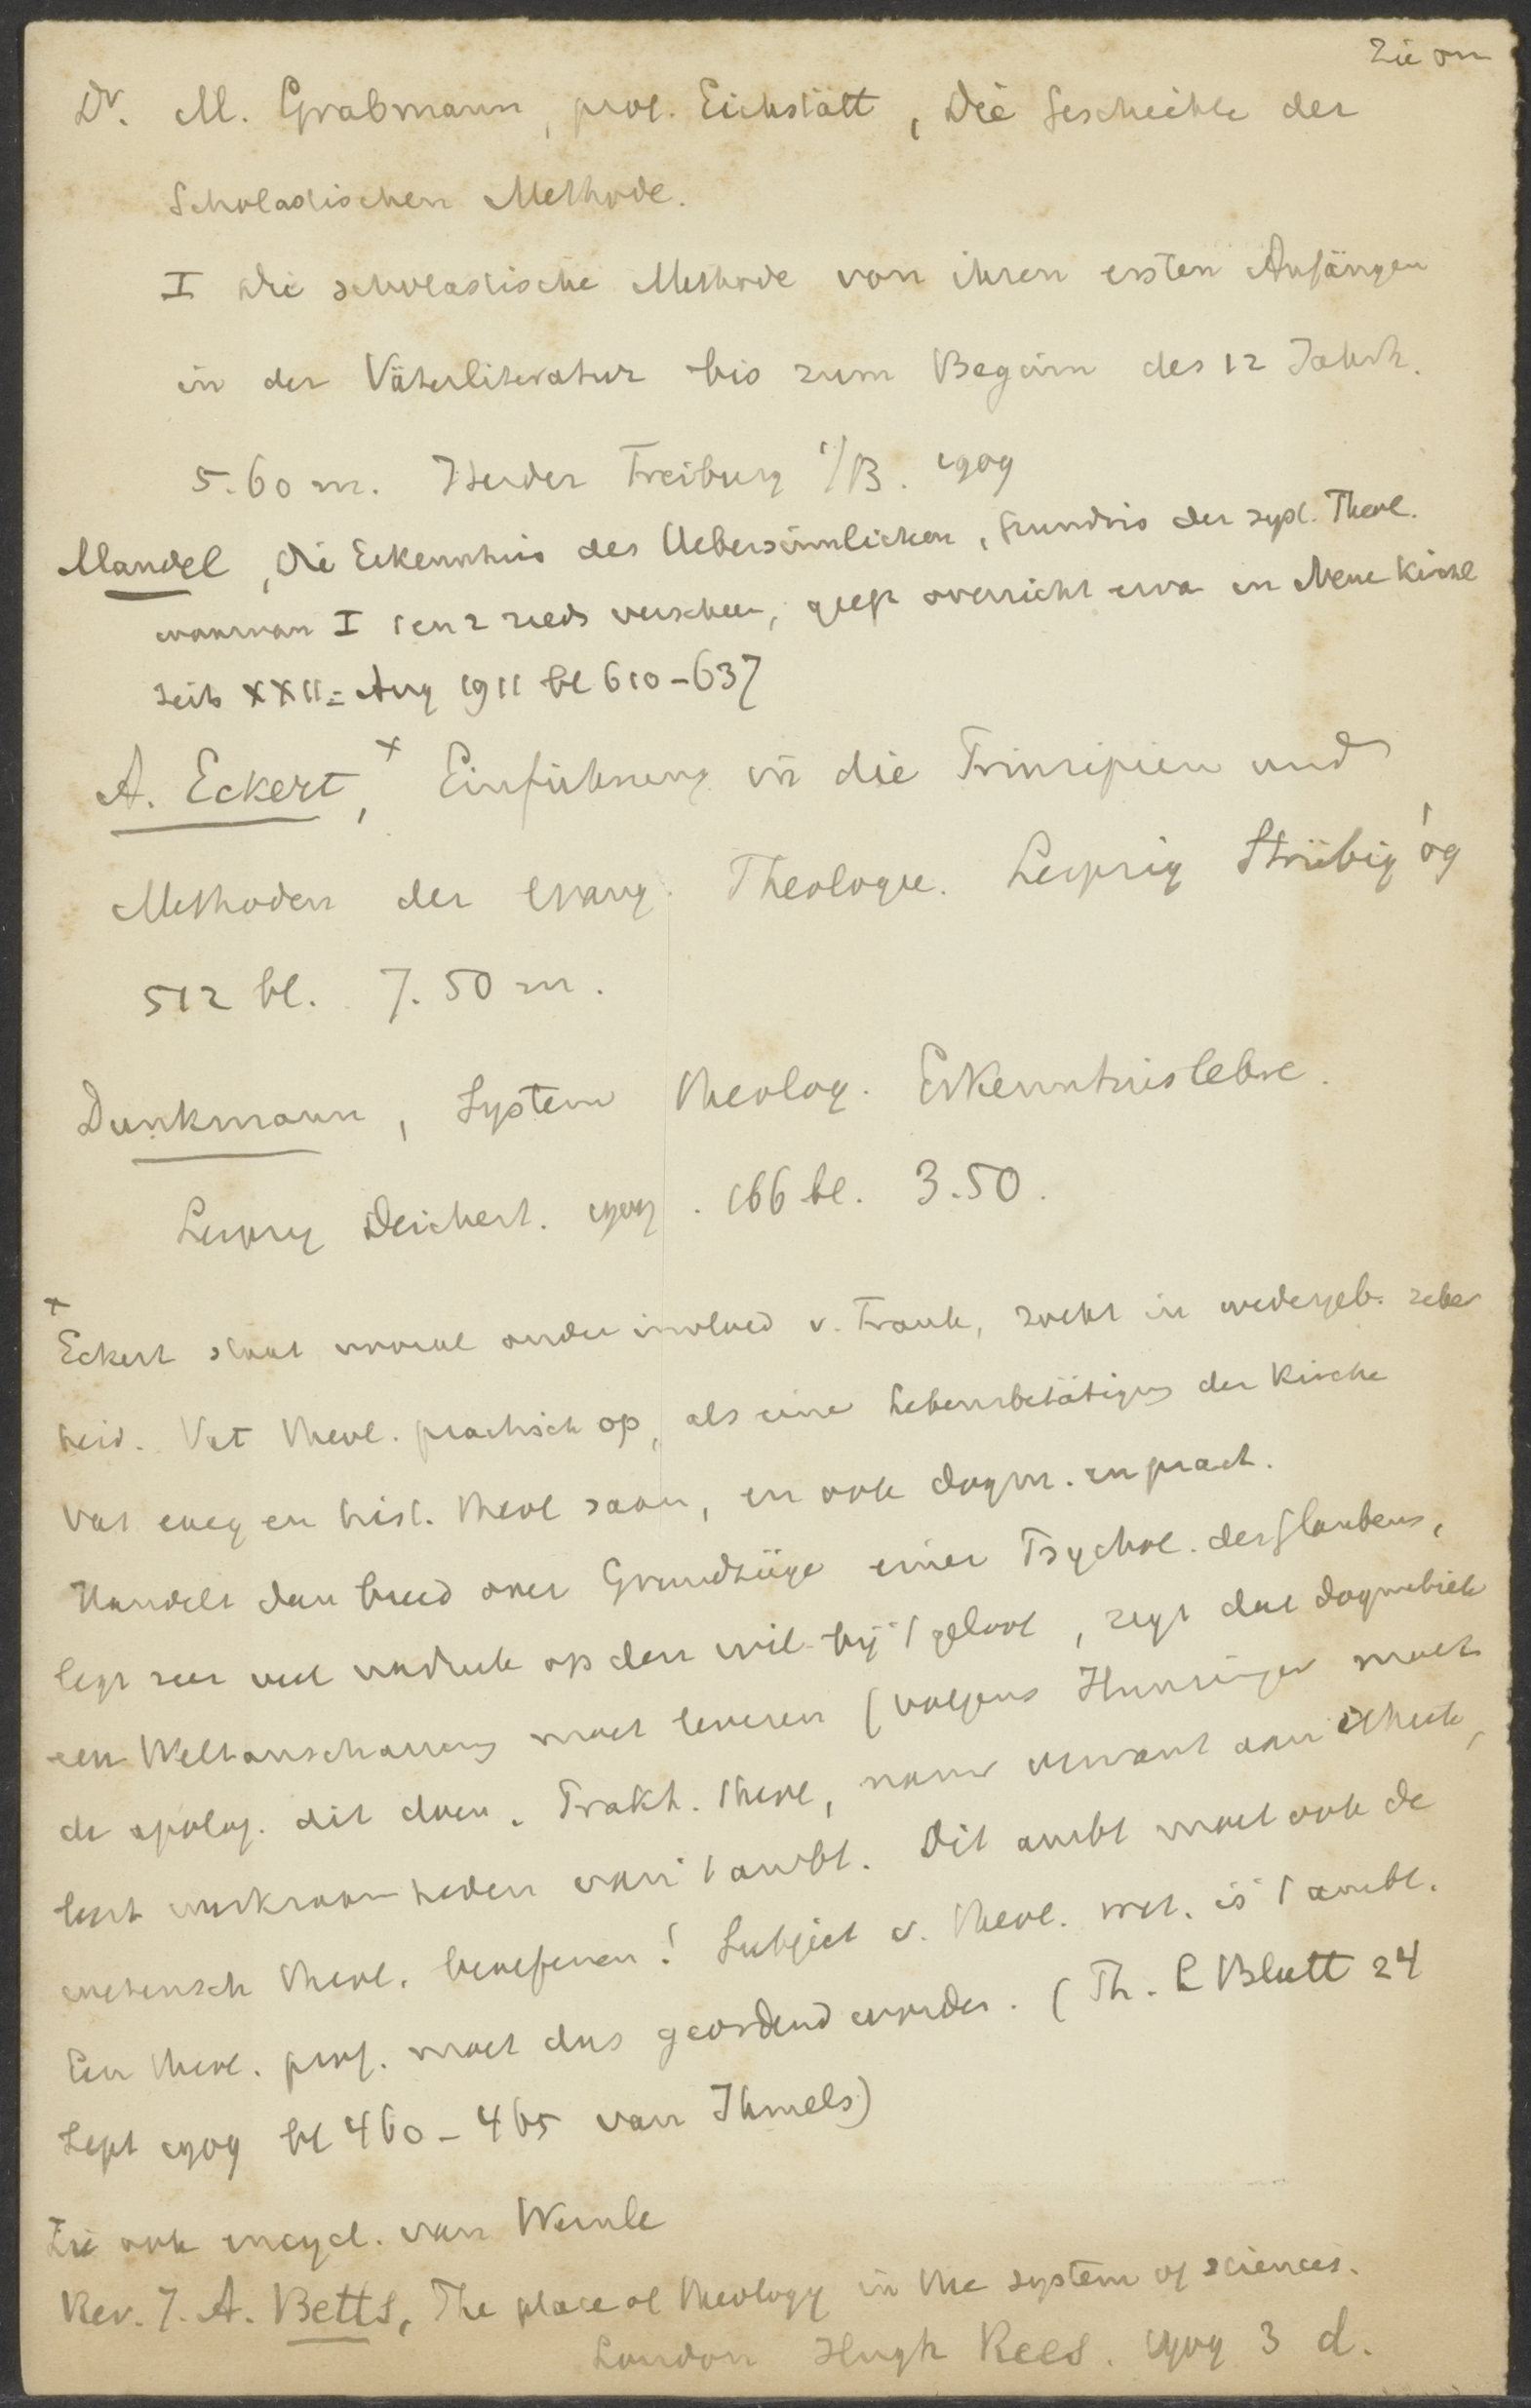 Zie om
Dr. M. Grabmann, prof. Eichstätt, Die Geschichte der
Scholastischen Methode.
I Die scholastische Methode von ihren ersten Anfängen
in der Väterliteratur bis zum Beginn des 12 Jahrh.
5.60 m. Herder Freiburg i/B. 1909
Mandel, Die Erkenntnis des Uebersinnlichen, Grundris der syst. Theol.
waarvan I 1 en 2 reeds verscheen, geeft overzicht erva in Neue Kirchl
Zeits XXII = Aug 1911 bl 610-637
A. Eckert,x Einführung in die Prinzipien und
Methoden der evang. Theologie. Leipzig Strübig '09
512 bl. 7.50 m.
Dunkmann, System theolog. Erkenntnislehre.
Leipzig Deichert. 1909. 166 bl. 3.50.
x Eckert staat vooral onder invloed v. Frank, zoekt in wedergeb. zeker
heid. Vat theol. practisch op, als eine Lebensbetätigung der Kirche
Vat exeg en hist. theol saam, en ook dogm. en pract.
Handelt dan breed over Grundzüge einer Psychol. des Glaubens,
legt zeer veel nadruk op den wil bij 't geloof, zegt dat dogmatiek
een Weltanschauung moet leveren (volgens Hunzinger moet
de apolog. dit doen. Prakt. theol, nauw verwant aan ethiek,
leert werkzaamheden van 't ambt. Dit ambt moet ook de
wetensch theol. beoefenen! Subject v. theol. wet. is 't ambt.
Een theol. prof. moet dus geordend worden. (Th. L Blatt 24
Sept 1909 bl 460-465 van Ihmels)
Zie ook encycl. van Wernle
Rev. J. A. Betts, The place of theology in the system of sciences.
London Hugh Rees. 1909 3 d.